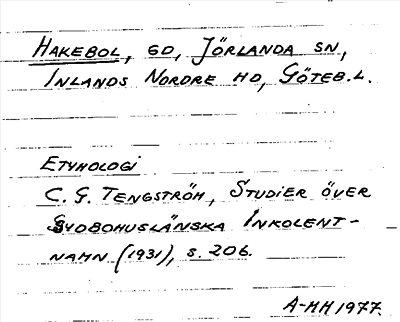 HAKEBOL, GD, JÖRLANDA SN,
INLANDS NORDRE HD, GÖTEB.L.
ETYMOLOGI
C. G. TENGSTRÖM, STUDIER ÖVER
SYDBOHUSLÄNSKA INKOLENT-
NAMN (1931), S. 206.
A-MH 1977.